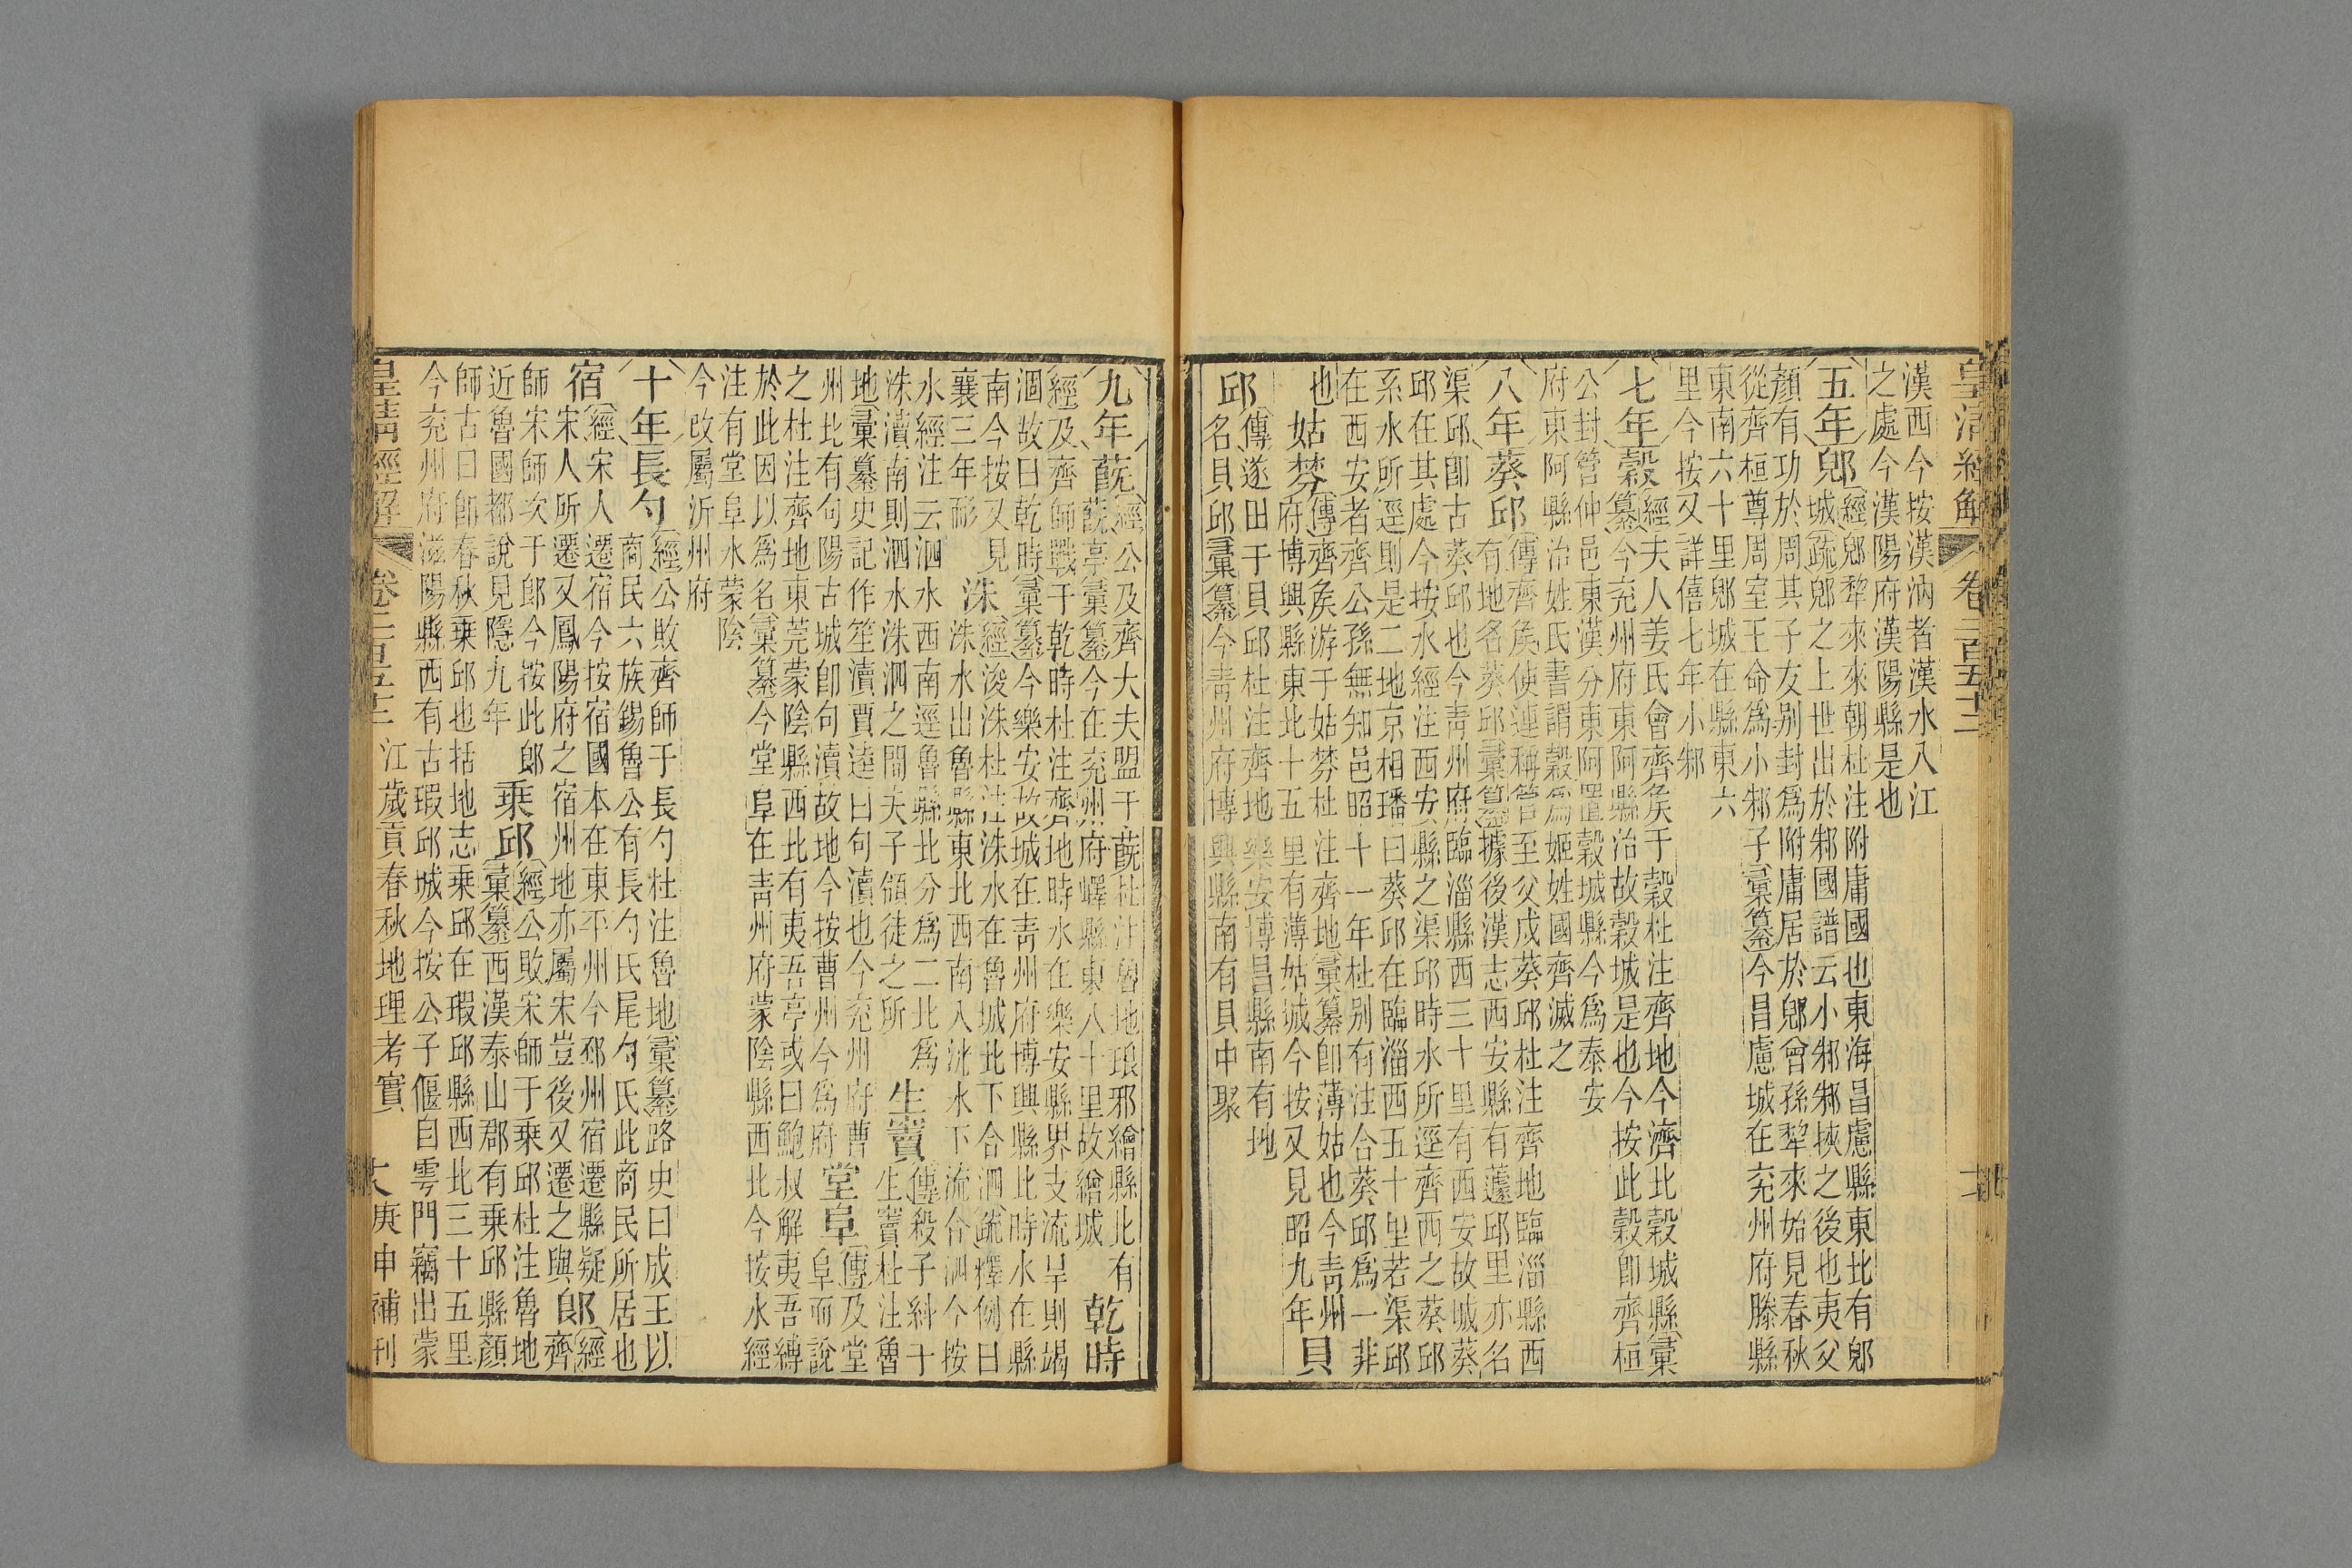 皇清經解 卷二百五十三
漢西今按漢汭者漢水入江
之處今漢陽府漢陽縣是也
五年郳經郳犂來來朝杜注附庸國也東海昌慮縣東北有郳
城疏郳之上世出於邾國譜云小邾邾挾之後也夷父
顏有功於周其子友別封爲附庸居於郳曾孫犂來始見春秋
從齊桓尊周室王命爲小邾子彙纂今昌慮城在兖州府滕縣
東南六十里郳城在縣東六
里今按又詳僖七年小邾
七年穀經夫人姜氏會齊矦于穀杜注齊地今濟北穀城縣彙
纂今兖州府東阿縣治故穀城是也今按此穀卽齊桓
公封管仲邑東漢分東阿置穀城縣今爲泰安
府東阿縣治姓氏書謂穀爲姬姓國齊滅之
八年葵邱傳齊矦使連稱管至父戍葵邱杜注齊地臨淄縣西
有地名葵邱彙纂據後漢志西安縣有蘧邱里亦名
渠邱卽古葵邱也今靑州府臨淄縣西三十里有西安故城葵
邱在其處今按水經注西安縣之渠邱時水所逕齊西之葵邱
系水所逕則是二地京相璠曰葵邱在臨淄西五十里若渠邱
在西安者齊公孫無知邑昭十一年杜别有注合葵邱爲一非
也姑棼傳齊矦游于姑棼杜注齊地彙纂卽薄姑也今靑州
府博興縣東北十五里有薄姑城今按又見昭九年貝
邱傳遂田于貝邱杜注齊地樂安博昌縣南有地
名貝邱彙纂今靑州府博興縣南有貝中聚
九年蔇經公及齊大夫盟于蔇杜注魯地琅邪繒縣北有
蔇亭彙纂今在兖州府嶧縣東八十里故繒城乾時
經及齊師戰于乾時杜注齊地時水在樂安縣界支流旱則竭
涸故曰乾時彙纂今樂安故城在靑州府博興縣北時水在縣
南今按又見洙經浚洙杜注洙水在魯城北下合泗疏釋例曰
襄三年耏洙水出魯縣東北西南入沇水下流合泗今按
水經注云泗水西南逕魯縣北分爲二北爲生竇傳殺子糾于
洙瀆南則泗水洙泗之閒夫子領徒之所生竇杜注魯
地彙纂史記作笙瀆賈逵曰句瀆也今兖州府曹
州北有句陽古城卽句瀆故地今按曹州今爲府堂阜傳及堂
阜而說
之杜注齊地東莞蒙陰縣西北有夷吾亭或曰鮑叔解夷吾縛
於此因以爲名彙纂今堂阜在靑州府蒙陰縣西北今按水經
注有堂阜水蒙陰
今改屬沂州府
十年長勺經公敗齊師于長勺杜注魯地彙纂路史曰成王以
商民六族錫魯公有長勺氏尾勺氏此商民所居也
宿經宋人遷宿今按宿國本在東平州今邳州宿遷縣疑郞經
宋人所遷又鳳陽府之宿州地亦屬宋豈後又遷之與齊
師宋師次于郞今按此郞乗邱經公敗宋師于乗邱杜注魯地
近魯國都說見隱九年彙纂西漢泰山郡有乗邱縣顏
師古曰卽春秋乗邱也括地志乗邱在瑕邱縣西北三十五里
今兖州府滋陽縣西有古瑕邱城今按公子偃自雩門竊出蒙
皇清經解 卷二百五十三 江歲貢春秋地理考實 庚申補刊